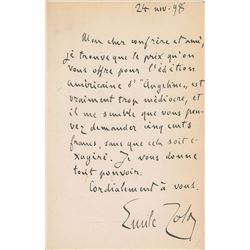 24 nov. 98
Mon cher confrère et ami,
je trouve que le prix qu'on
vous offre pour l'édition
américaine d'"Angeline" est
vraiment trop médiocre, et
il me semble que vous pou-
vez demander cinq cents
francs, sans que cela soit e-
xagéré. Je vous donne
tout pouvoir.
Cordialement à vous.
Emile Zola